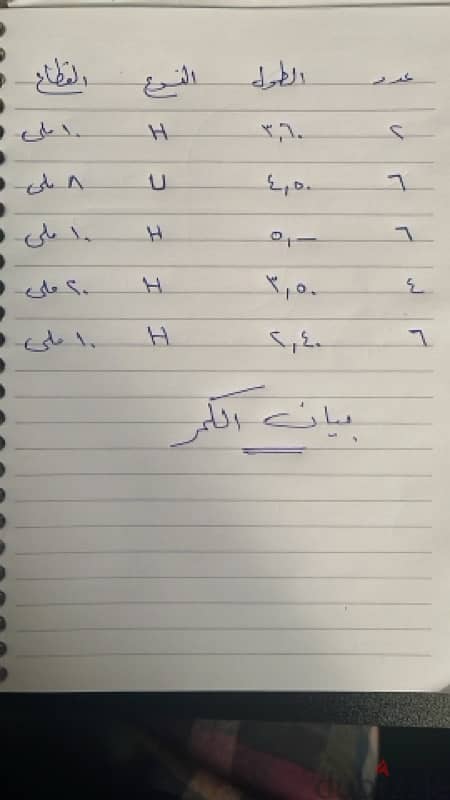 عدد الطول النوع القطاع
٢ ٣,٦٠ H ١٠ ملى
٦ ٤,٥٠ U ٨ ملى
٦ ٥,— H ١٠ ملى
٤ ٣,٥٠ H ٢٠ ملى
٦ ٢,٤٠ H ١٠ ملى
بيان الكمر